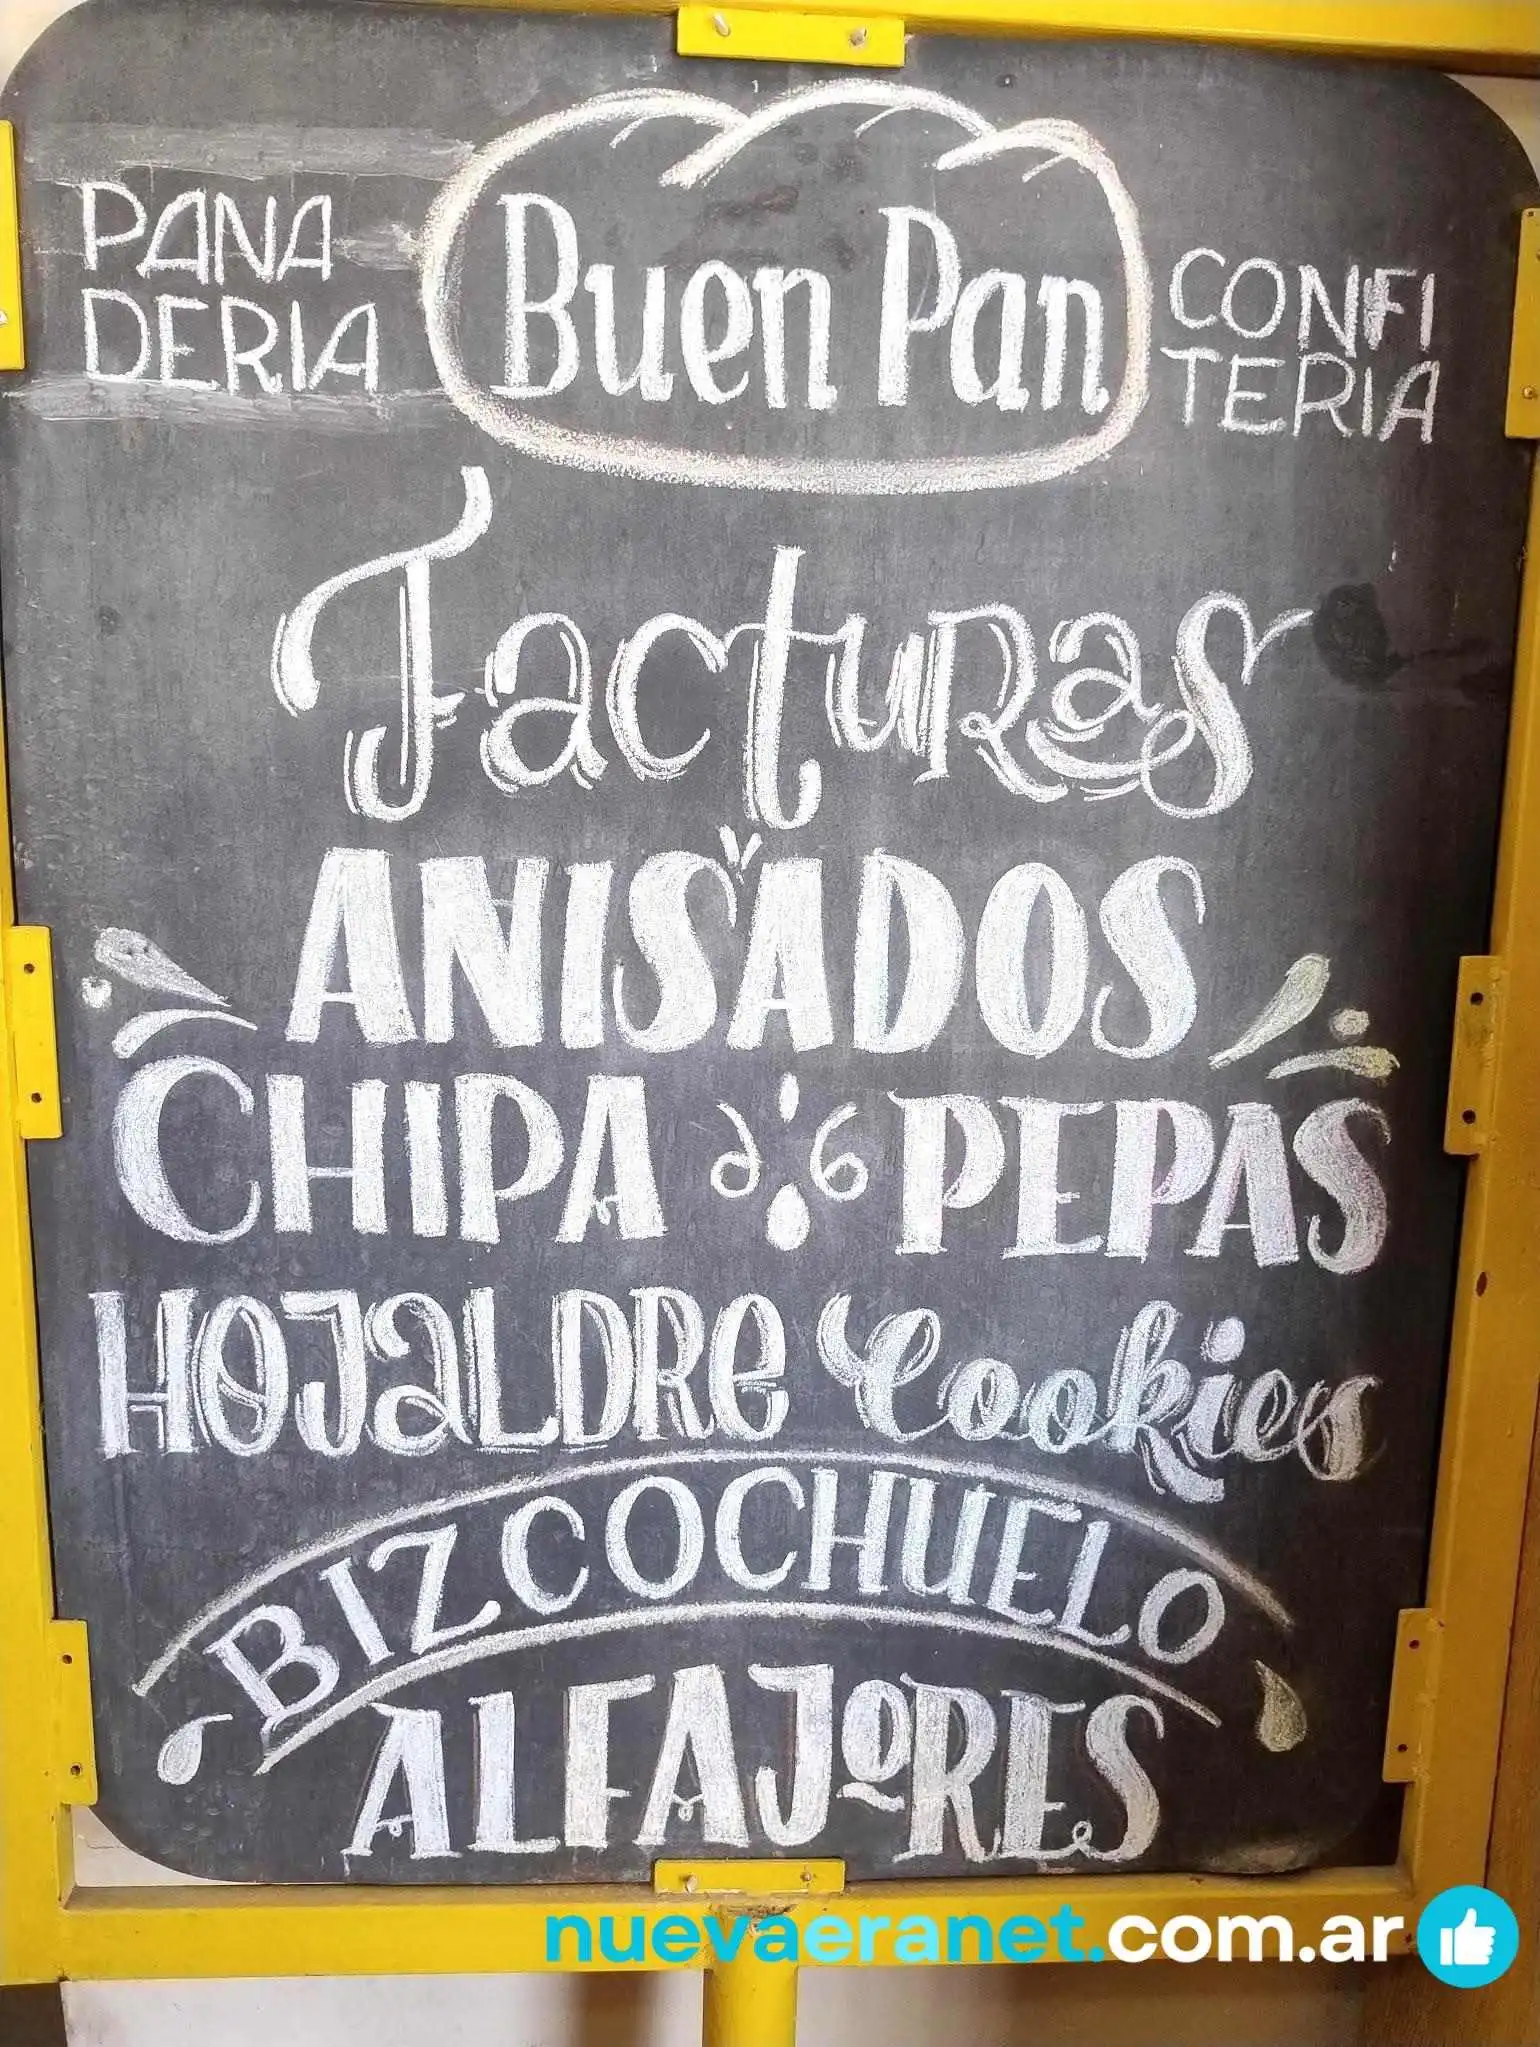 PANA
DERIA
Buen Pan
CONFI
TERIA
Facturas
ANISADOS
CHIPA PEPAS
HOJALDRE Cookies
BIZCOCHUELO
ALFAJORES
nuevaeranet.com.ar